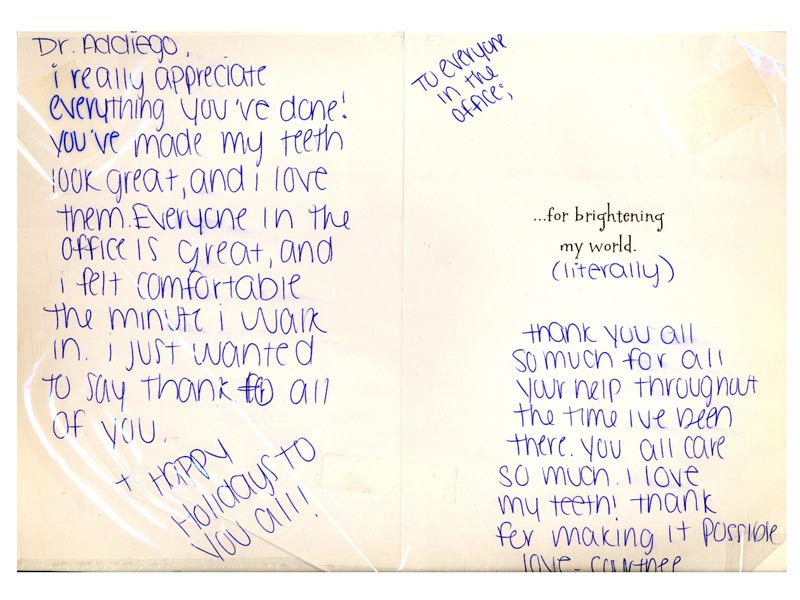 Dr. Addiego,
i really appreciate
everything you've done!
you've made my teeth
look great, and i love
them. Everyone in the
office is great, and
i felt comfortable
the minute i walk
in. i just wanted
to say thank to all
of you.
+ Happy
Holidays to
you all!
To everyone
in the
office;
...for brightening
my world.
(literally)
thank you all
so much for all
your help throughout
the time i've been
there. you all care
so much. i love
my teeth! thank
for making it possible
love - courtnee